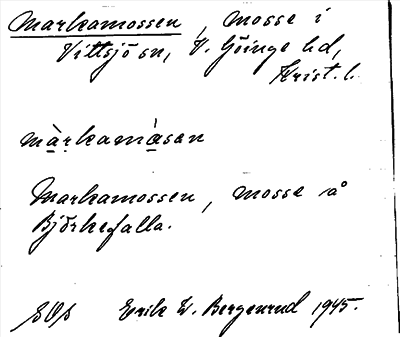 Markamossen, mosse i
Vittsjö sn, V. Göinge hd,
Krist. l.
màrkamåsan
Markamossen, mosse på
Björkefalla.
Erik W. Bergenrud 1945.